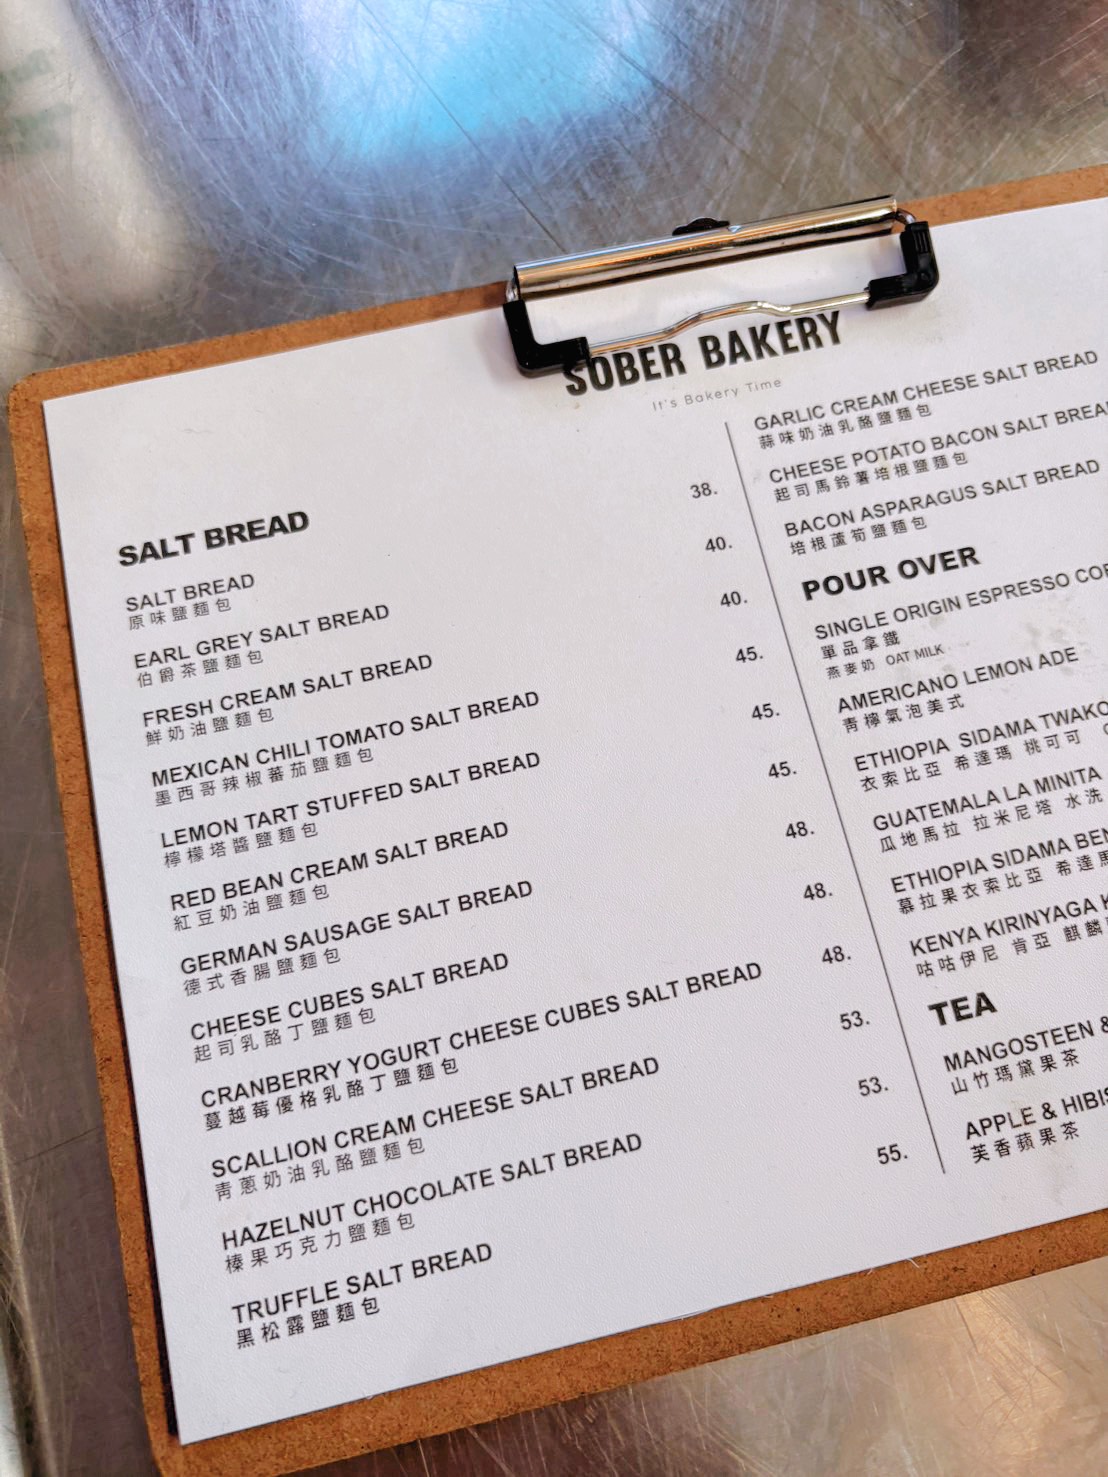 SOBER BAKERY
It's Bakery Time
SALT BREAD
SALT BREAD 38.
原味鹽麵包
EARL GREY SALT BREAD 40.
伯爵茶鹽麵包
FRESH CREAM SALT BREAD 40.
鮮奶油鹽麵包
MEXICAN CHILI TOMATO SALT BREAD 45.
墨西哥辣椒蕃茄鹽麵包
LEMON TART STUFFED SALT BREAD 45.
檸檬塔醬鹽麵包
RED BEAN CREAM SALT BREAD 45.
紅豆奶油鹽麵包
GERMAN SAUSAGE SALT BREAD 48.
德式香腸鹽麵包
CHEESE CUBES SALT BREAD 48.
起司乳酪丁鹽麵包
CRANBERRY YOGURT CHEESE CUBES SALT BREAD 48.
蔓越莓優格乳酪丁鹽麵包
SCALLION CREAM CHEESE SALT BREAD 53.
青蔥奶油乳酪鹽麵包
HAZELNUT CHOCOLATE SALT BREAD 53.
榛果巧克力鹽麵包
TRUFFLE SALT BREAD 55.
黑松露鹽麵包
GARLIC CREAM CHEESE SALT BREAD
蒜味奶油乳酪鹽麵包
CHEESE POTATO BACON SALT BREAD
起司馬鈴薯培根鹽麵包
BACON ASPARAGUS SALT BREAD
培根蘆筍鹽麵包
POUR OVER
SINGLE ORIGIN ESPRESSO
單品拿鐵
燕麥奶 OAT MILK
AMERICANO LEMON ADE
青檸氣泡美式
ETHIOPIA SIDAMA TWAKO
衣索比亞 希達瑪 桃可可
GUATEMALA LA MINITA
瓜地馬拉 拉米尼塔 水洗
ETHIOPIA SIDAMA
慕拉果衣索比亞 希達
KENYA KIRINYAGA
咕咕伊尼 肯亞 麒麟
TEA
MANGOSTEEN &
山竹瑪黛果茶
APPLE &
芙香蘋果茶